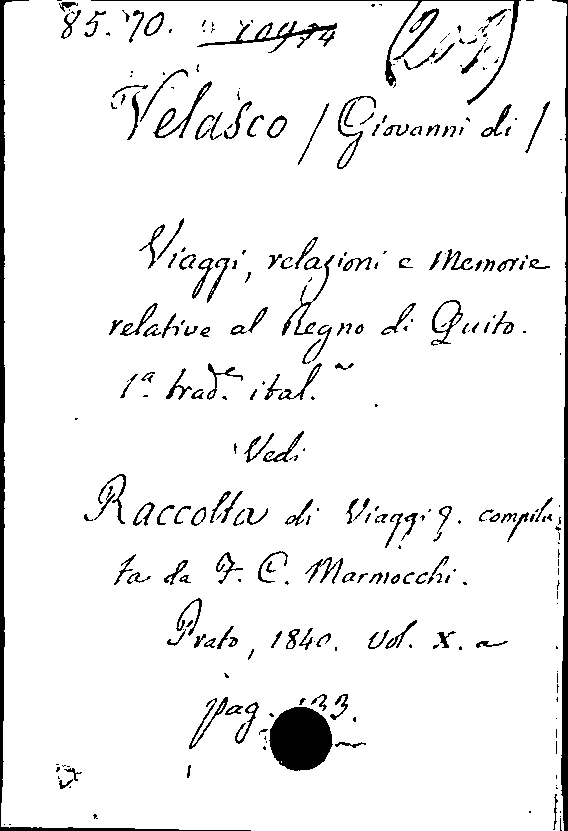 85.70.
Velasco / Giovanni di /
Viaggi, relazioni e Memorie
relative al Regno di Quito.
1ª trad.e ital.
Vedi
Raccolta di Viaggi &. compila
ta da F. C. Marmocchi.
Prato, 1840. Vol. X. a
pag.